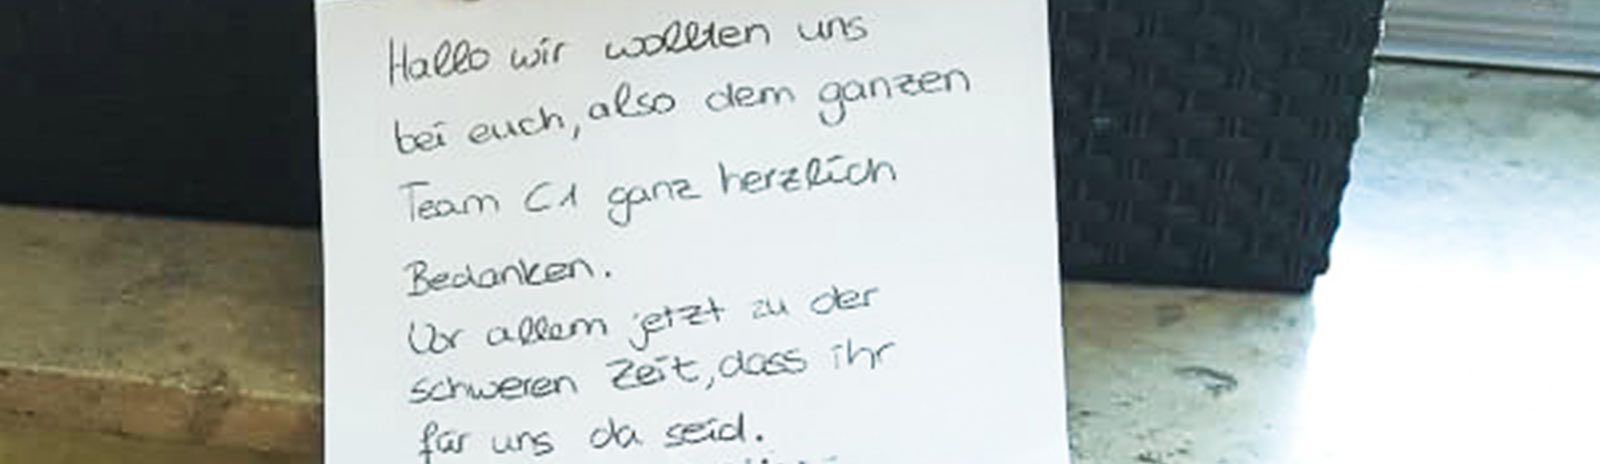 Hallo wir wollten uns
bei euch, also dem ganzen
Team C1 ganz herzlich
Bedanken.
Vor allem jetzt zu der
schweren Zeit, dass ihr
für uns da seid.